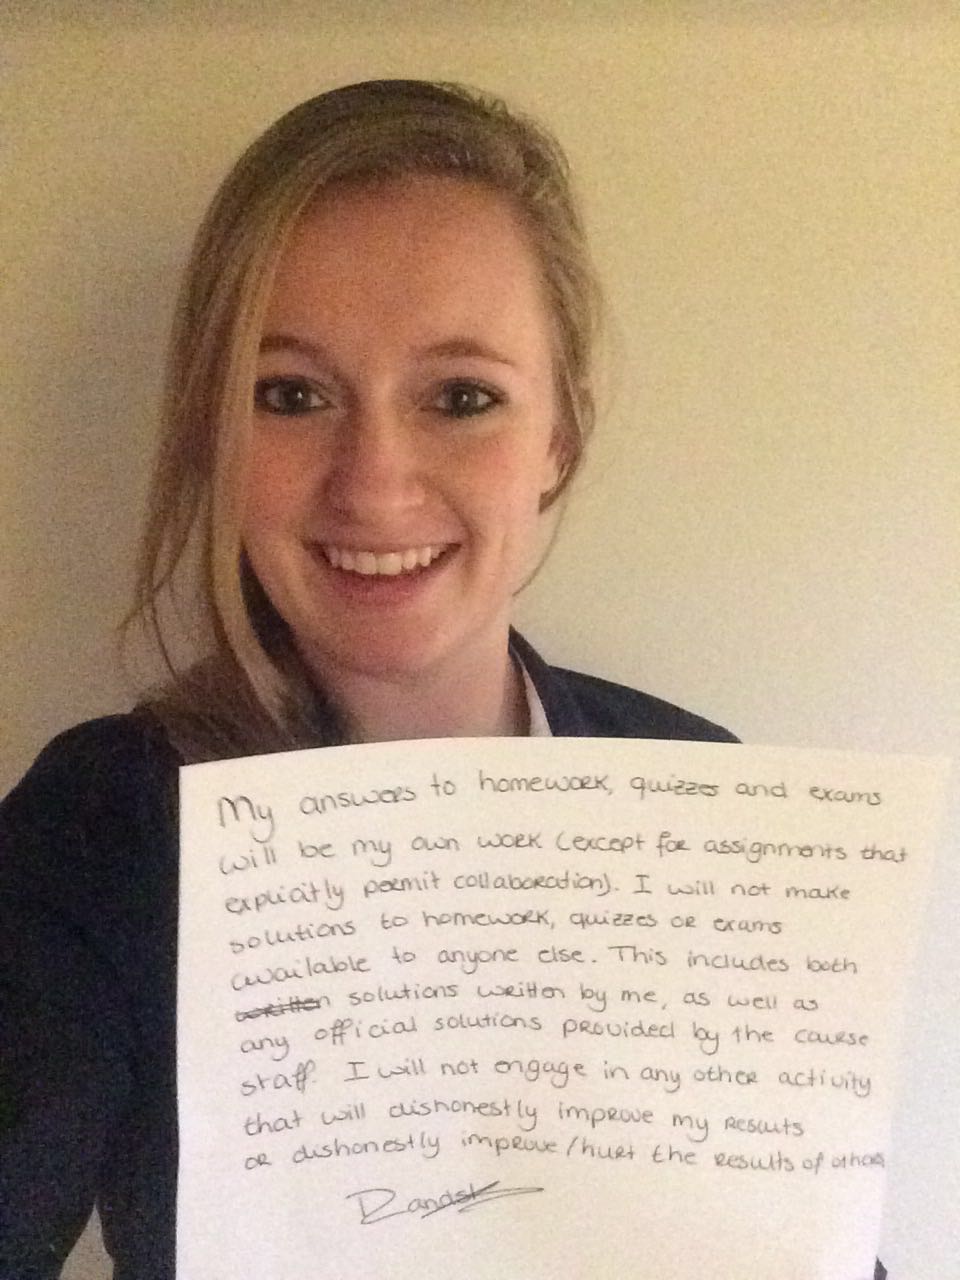 My answers to homework, quizzes and exams
will be my own work (except for assignments that
explicitly permit collaboration). I will not make
solutions to homework, quizzes or exams
available to anyone else. This includes both
written solutions written by me, as well as
any official solutions provided by the course
staff. I will not engage in any other activity
that will dishonestly improve my results
or dishonestly improve/hurt the results of others